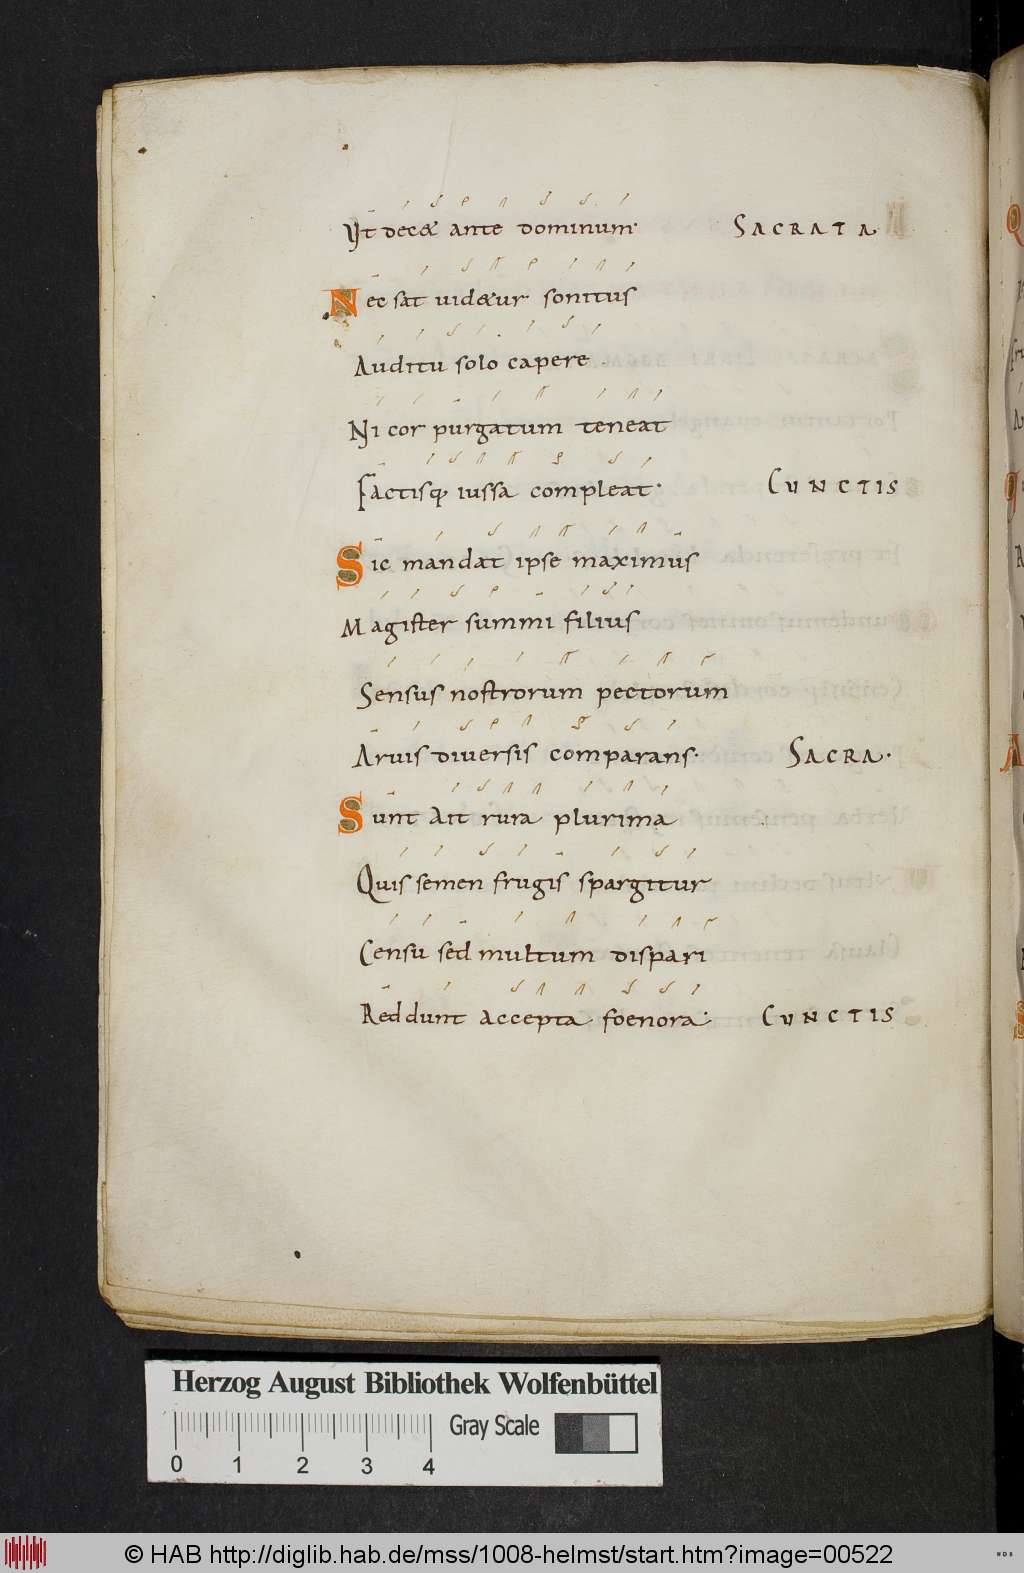 Vt decet ante dominum· SACRATA
Nec sat uidetur sonitus
Auditu solo capere·
Ni cor purgatum teneat
Factisq; iussa compleat· CUNCTIS
Sic mandat ipse maximus
Magister summi filius
Sensus nostrorum pectorum
Aruis diuersis comparans· SACRA·
Sunt ait rura plurima
Quis semen frugis spargitur
Censu sed multum dispari
Reddunt accepta foenora· CUNCTIS
Herzog August Bibliothek Wolfenbüttel
Gray Scale
0 1 2 3 4
© HAB http://diglib.hab.de/mss/1008-helmst/start.htm?image=00522